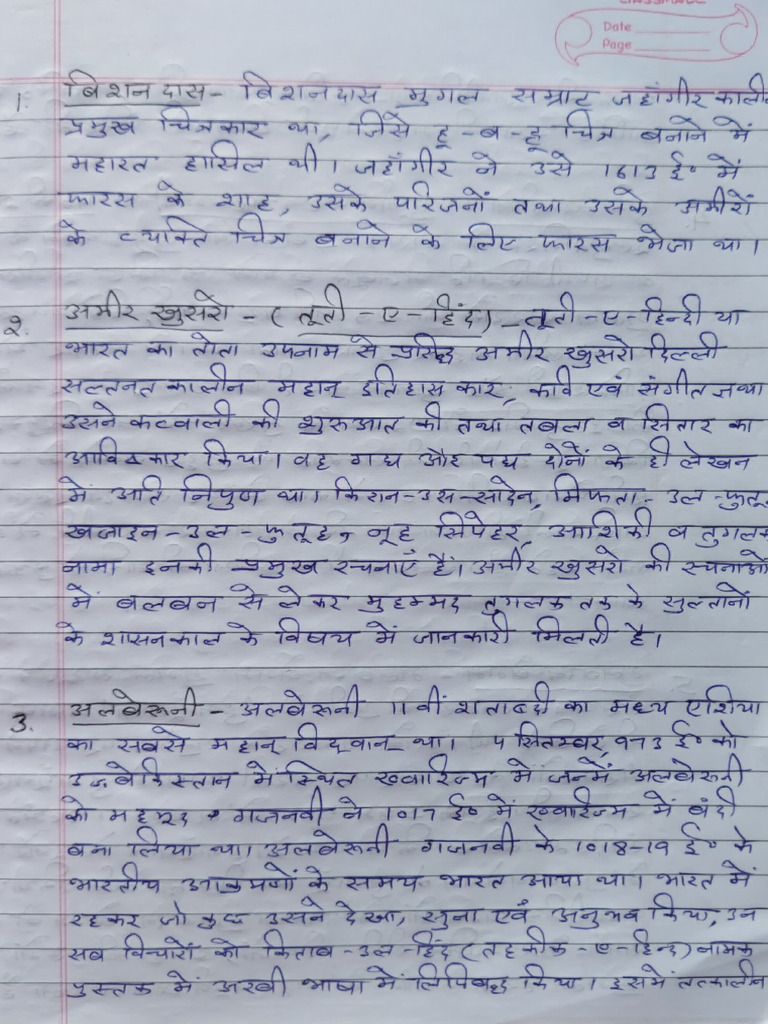 Date
Page
1. बिशनदास - बिशनदास मुगल सम्राट जहाँगीर कालीन
प्रमुख चित्रकार था, जिसे हू-ब-हू चित्र बनाने में
महारत हासिल थी। जहाँगीर ने उसे 1613 ई० में
फारस के शाह, उसके परिजनों तथा उसके अमीरों
के व्यक्ति चित्र बनाने के लिए फारस भेजा था।
2. अमीर खुसरो - (तूती-ए-हिंद) - तूती-ए-हिन्दी या
भारत का तोता उपनाम से प्रसिद्ध अमीर खुसरो दिल्ली
सल्तनत कालीन महान् इतिहास कार, कवि एवं संगीतज्ञ था
उसने कव्वाली की शुरुआत की तथा तबला व सितार का
आविष्कार किया। वह गद्य और पद्य दोनों के ही लेखन
में अति निपुण था। किरान-उस-सादेन, मिफता-उल-फुतूह
खजाइन-उल-फुतूह, नूह सिपेहर, आशिकी व तुगलक
नामा इनकी प्रमुख रचनाएँ हैं। अमीर खुसरो की रचनाओं
में बलबन से लेकर मुहम्मद तुगलक तक के सुल्तानों
के शासनकाल के विषय में जानकारी मिलती है।
3. अलबेरूनी - अलबेरूनी 11वीं शताब्दी का मध्य एशिया
का सबसे महान् विद्वान् था। 4 सितम्बर, 973 ई० को
उज्बेकिस्तान में स्थित ख्वारिज्म में जन्में अलबेरूनी
को महमूद गजनवी ने 1017 ई० में ख्वारिज्म में बंदी
बना लिया था। अलबेरूनी गजनवी के 1018-19 ई० के
भारतीय आक्रमणों के समय भारत आया था। भारत में
रहकर जो कुछ उसने देखा, सुना एवं अनुभव किया, उन
सब विचारों को किताब-उल-हिंद (तहकीक-ए-हिन्द) नामक
पुस्तक में अरबी भाषा में लिपिबद्ध किया। इसमें तत्कालीन